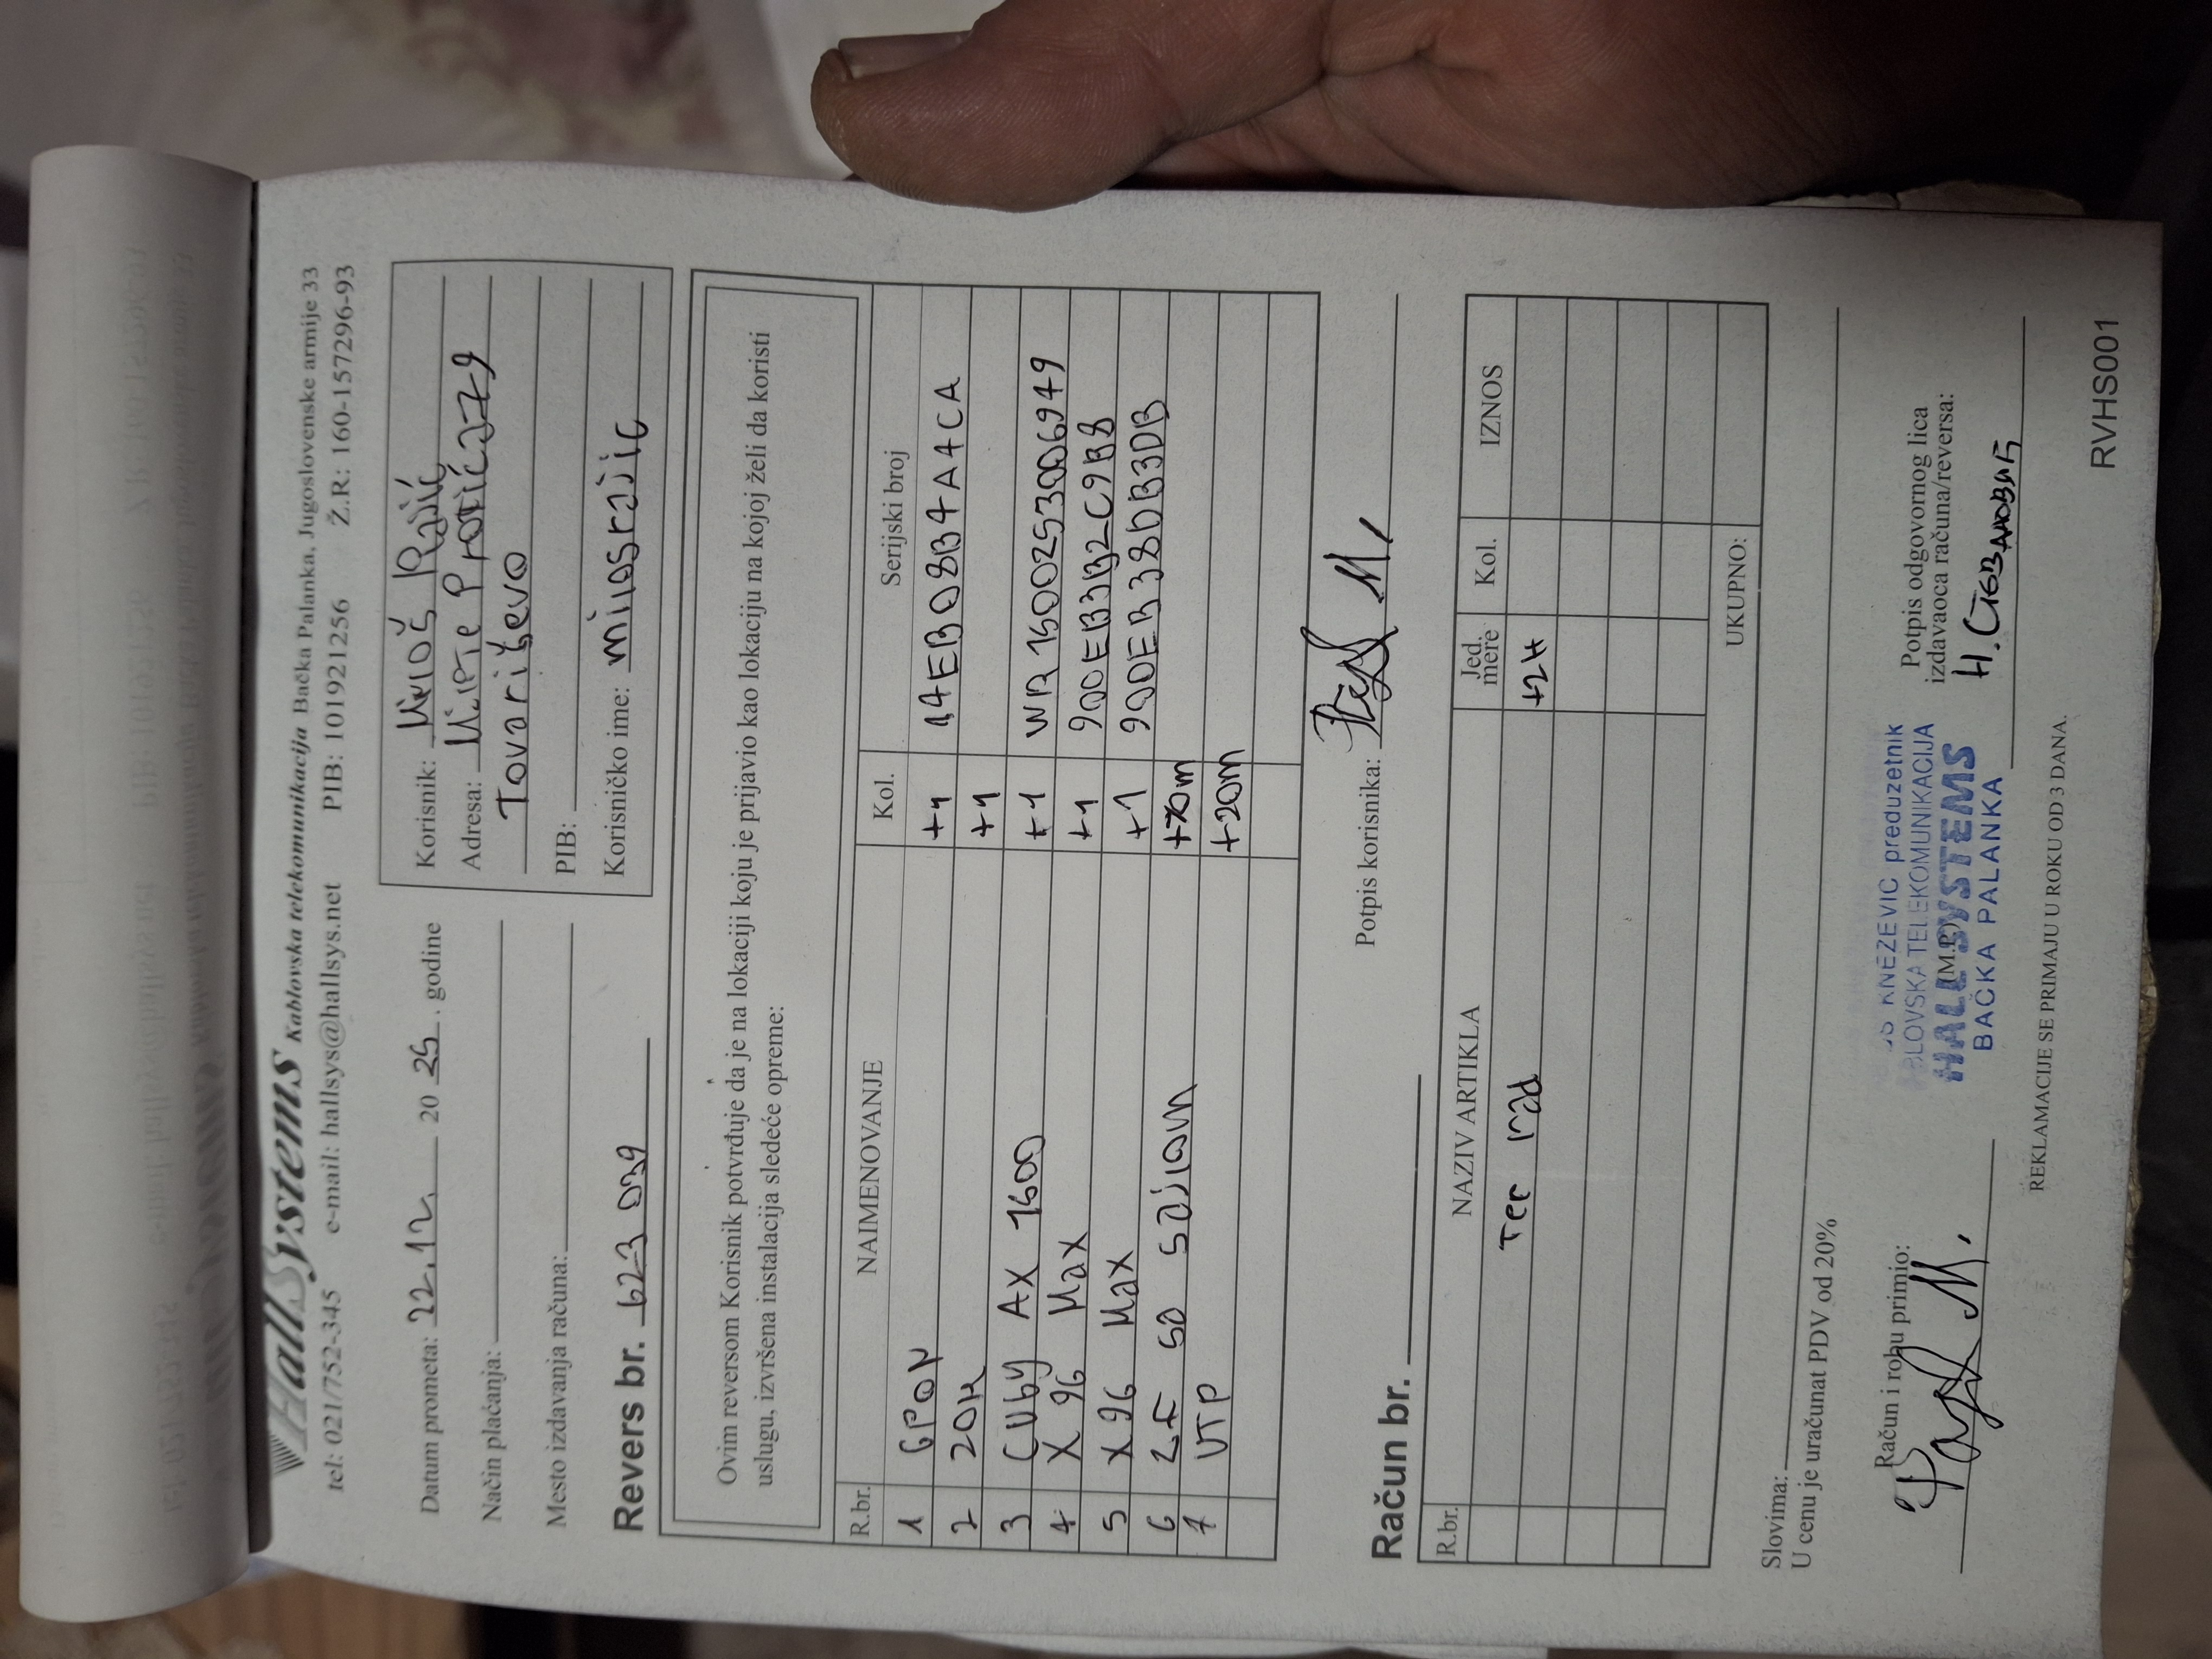 HallSystems Kablovska telekomunikacija Bačka Palanka, Jugoslovenske armije 33
tel: 021/752-345 e-mail: hallsys@hallsys.net PIB: 101921256 Ž.R.: 160-157296-93
Datum prometa: 22.12. 20 25. godine
Način plaćanja:
Mesto izdavanja računa:
Korisnik: Miloš Rajić
Adresa: Mite Protića 79
Tovariševo
PIB:
Korisničko ime: milosrajic
Revers br. 623 039
Ovim reversom Korisnik potvrđuje da je na lokaciji koju je prijavio kao lokaciju na kojoj želi da koristi
uslugu, izvršena instalacija sledeće opreme:
R.br. NAIMENOVANJE Kol. Serijski broj
1 GPON +1 A4EB08B4A4CA
2 ZOK +1
3 CUDY AX 1500 +1 WR1500253006949
4 X 96 Max +1 900EB3B2C9B8
5 X 96 Max +1 900EB38DB3DB
6 2F SO sajlom +70m
7 UTP +20m
Potpis korisnika:
Račun br.
R.br. NAZIV ARTIKLA Jed. mere Kol. IZNOS
Teh rad +2H
UKUPNO:
Slovima:
U cenu je uračunat PDV od 20%
Račun i robu primio:
(M.P.)
KNEZEVIC preduzetnik
BLOVSKA TELEKOMUNIKACIJA
HALL SYSTEMS
BAČKA PALANKA
Potpis odgovornog lica
izdavaoca računa/reversa:
Н. Стевановић
REKLAMACIJE SE PRIMAJU U ROKU OD 3 DANA.
RVHS001